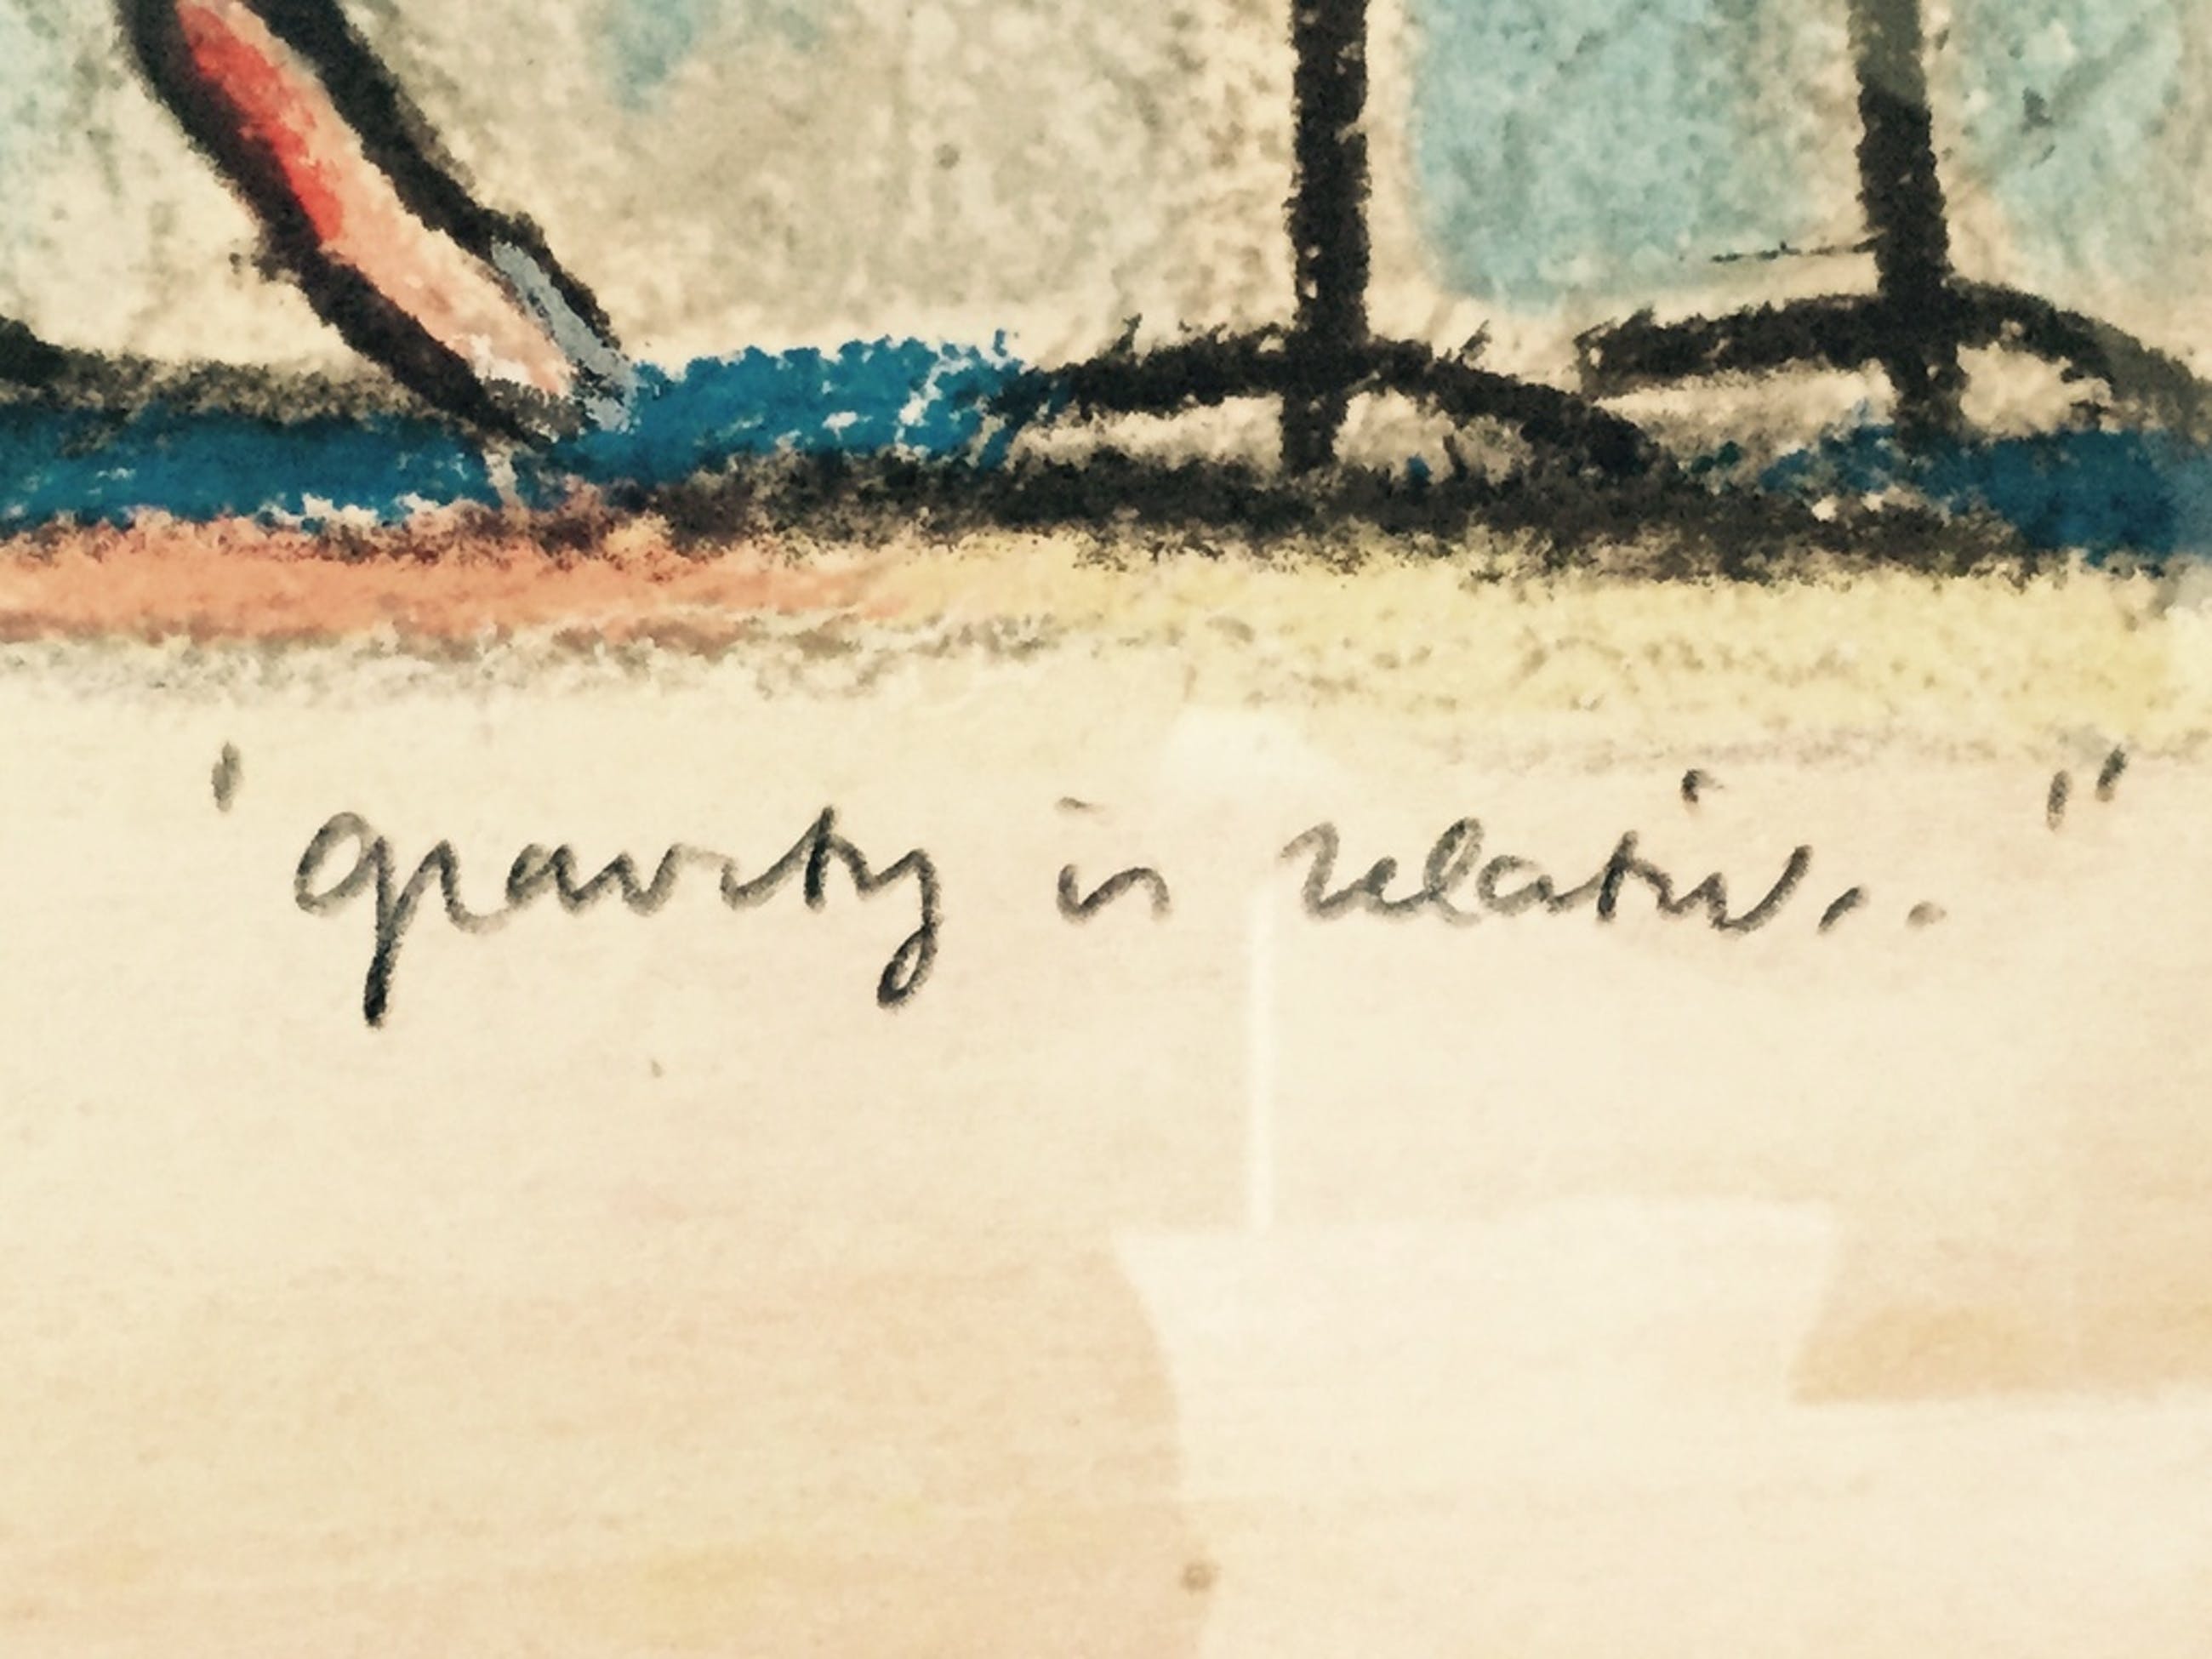 'gravity is relativ.. "